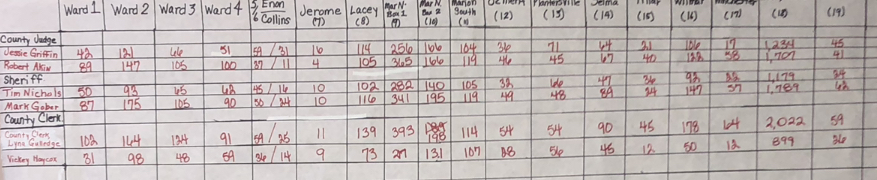 Ward 1 Ward 2 Ward 3 Ward 4 5/6 Enon Collins Jerome (7) Lacey (8) Mar N. Box 1 (9) Mar N. Box 2 (10) Marion South (11) (12) Plantersville (13) Selma (14) (15) Wilmar (16) (17) (18) (19)
County Judge
Jessie Griffin 42 121 66 51 59 / 31 16 114 256 166 104 36 71 64 21 106 17 1,234 45
Robert Akin 89 147 105 100 37 / 11 4 105 365 166 119 46 45 67 40 58 1,707 41
Sheriff
Tim Nichols 50 93 65 62 45 / 16 10 102 282 140 105 32 66 47 36 92 1,179 24
Mark Gober 87 175 105 90 50 / 24 10 116 341 195 119 49 48 89 24 147 57 1,789 62
County Clerk
County Clerk
Lynn Gulledge 102 164 124 91 59 / 25 11 139 393 198 114 54 54 90 45 178 64 2,022 59
Vickey 31 98 48 59 36 / 14 9 73 131 107 28 56 45 12 50 12 899 36